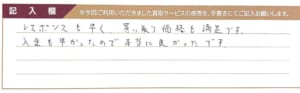 記入欄 ※今回ご利用いただきました買取サービスの感想を、手書きにてご記入お願いします。
レスポンスも早く、買い取り価格も満足です。
入金も早かったので本当に良かったです。